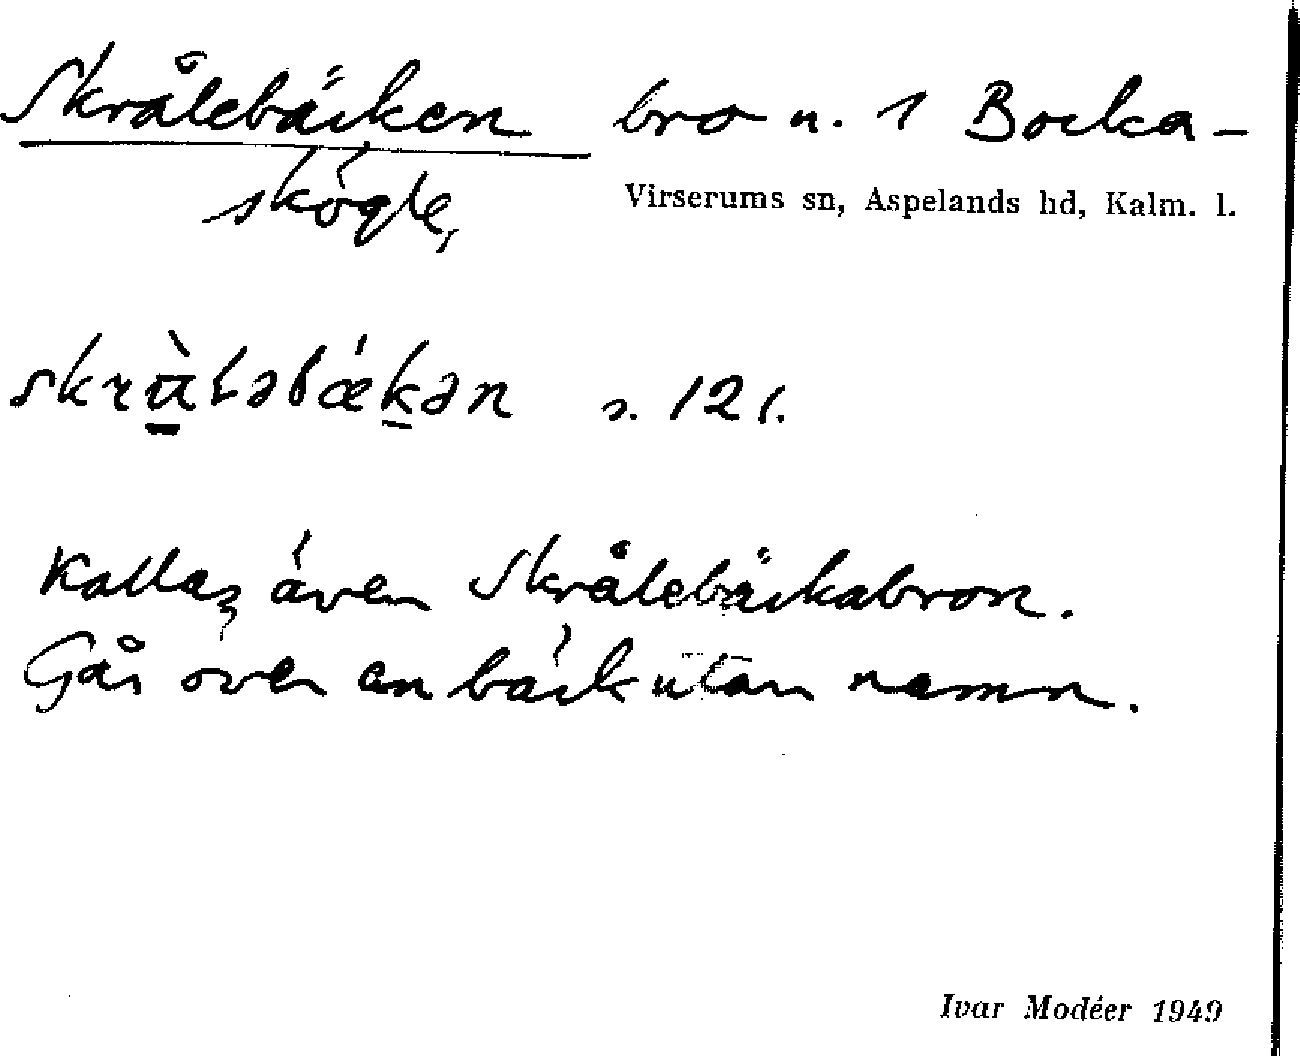 Skrålebäcken bro u. 1 Bocka-
skögle,
Virserums sn, Aspelands hd, Kalm. l.
s. 121.
Kallas även Skrålebäckabron.
Går över en bäck utan namn.
Ivar Modéer 1949